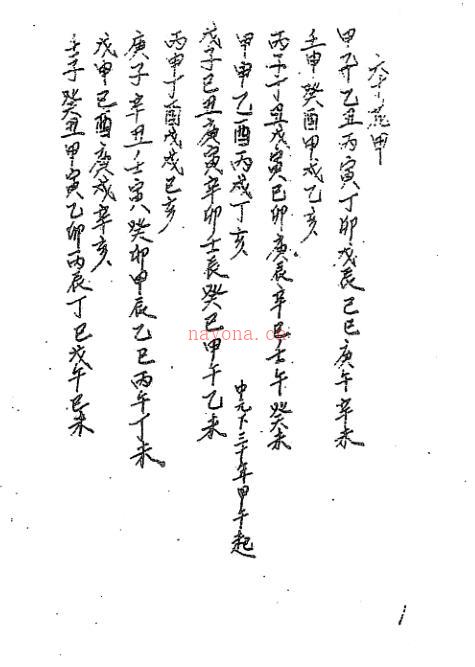 六十花甲
甲子乙丑丙寅丁卯戊辰己巳庚午辛未
壬申癸酉甲戌乙亥
丙子丁丑戊寅己卯庚辰辛巳壬午癸未
甲申乙酉丙戌丁亥
中元下三十年甲午起
戊子己丑庚寅辛卯壬辰癸巳甲午乙未
丙申丁酉戊戌己亥
庚子辛丑壬寅癸卯甲辰乙巳丙午丁未
戊申己酉庚戌辛亥
壬子癸丑甲寅乙卯丙辰丁巳戊午己未
1
nayona.cn